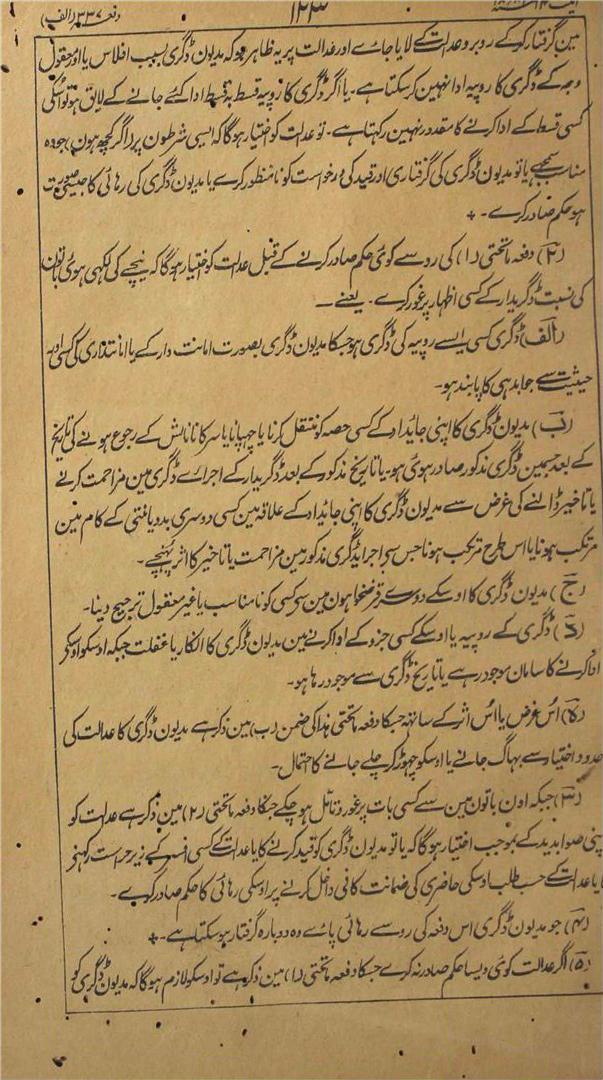 ۱۲۳ دفعہ ۳۳۷ (الف)
مین گرفتار کرکے روبرو عدالت کے لایا جاے اور عدالت پر یہ ظاہر ہو کہ مدیون ڈگری بسبب افلاس یا اور معقول
وجہ کے ڈگری کا روپیہ ادا نہین کرسکتا ہے۔ یا اگر ڈگری کا روپیہ قسط بہ قسط ادا کئے جانے کے لایق ہو تو اُسکی
کسی قسط کے ادا کرنے کا مقدور نہین رکہتا ہے۔ تو عدالت کو اختیار ہوگا کہ ایسی شرطون پر (اگر کچھ ہون) جو وہ
مناسب سمجہے یا تو مدیون ڈگری کی گرفتاری اور قید کی درخواست کو نامنظور کرے یا مدیون ڈگری کی رہائی کا جیسی صورت
ہو حکم صادر کرے۔ +
(۲) دفعہ ماتحتی (۱) کی رو سے کوئی حکم صادر کرنے کے قبل عدالت کو اختیار ہوگا کہ نیچے کی لکہی ہوئی باتون
کی نسبت ڈگریدار کے کسی اظہار پر غور کرے۔ یعنے ــ
(الف) ڈگری کسی ایسے روپیہ کی ڈگری ہو جسکا مدیون ڈگری بصورت امانت دار کے یا امانتداری کی کسی اور
حیثیت سے جوابدہی کا پابند ہو۔
(ب) مدیون ڈگری کا اپنی جائداد کے کسی حصہ کو منتقل کرنا یا چہپانا یا سرکانا نالش کے رجوع ہونے کی تاریخ
کے بعد جسمین ڈگری مذکور صادر ہوئی ہو۔ یا تاریخ مذکور کے بعد ڈگریدار کے اجراے ڈگری مین مزاحمت کرنے
یا تاخیر ڈالنے کی غرض سے مدیون ڈگری کا اپنی جائداد کے علاقہ مین کسی دوسری بددیانتی کے کام مین
مرتکب ہونا یا اس طرح مرتکب ہونا جس سے اجراے ڈگری مذکور مین مزاحمت یا تاخیر کا اثر پہنچے۔
(ج) مدیون ڈگری کا اوسکے دوسرے قرضخواہون مین سے کسی کو نامناسب یا غیر معقول ترجیح دینا۔
(د) ڈگری کے روپیہ یا اوسکے کسی جزو کے ادا کرنے مین مدیون ڈگری کا انکار یا غفلت جبکہ اوسکو اوسکے
ادا کرنے کا سامان موجود رہے یا تاریخ ڈگری سے موجود رہا ہو۔
(ہ) اُس غرض یا اُس اثر کے ساتھ جسکا دفعہ ماتحتی ہذا کی ضمن (ب) مین ذکر ہے مدیون ڈگری کا عدالت کی
حدود اختیار سے بہاگ جانے یا اوسکو چہوڑ کر چلے جانے کا احتمال۔
(۳) جبکہ اون باتون مین سے کسی بات پر غور و تامل ہو چکے جنکا دفعہ ماتحتی (۲) مین ذکر ہے عدالت کو
اپنی صوابدید کے بموجب اختیار ہوگا کہ یا تو مدیون ڈگری کو قید کرنے کا یا عدالت کے کسی افسر کے زیر حراست رکہنے
کا یا عدالت کے حسب طلب اوسکی حاضری کی ضمانت کافی داخل کرنے پر اوسکی رہائی کا حکم صادر کرے۔
(۴) جو مدیون ڈگری اس دفعہ کی رو سے رہائی پاے وہ دوبارہ گرفتار ہو سکتا ہے۔ +
(۵) اگر عدالت کوئی ویسا حکم صادر نہ کرے جسکا دفعہ ماتحتی (۱) مین ذکر ہے تو اوسکو لازم ہوگا کہ مدیون ڈگری کو